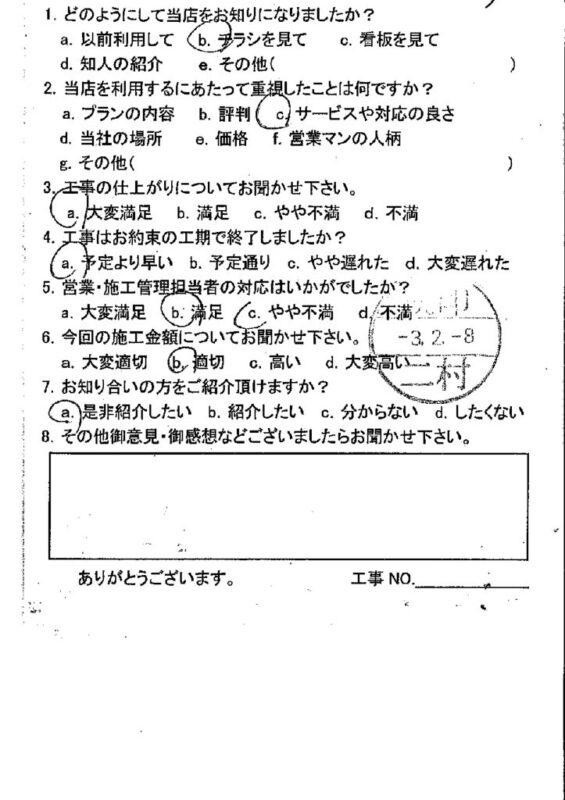 1. どのようにして当店をお知りになりましたか？
a. 以前利用して　b. チラシを見て　c. 看板を見て
d. 知人の紹介　e. その他(　)
2. 当店を利用するにあたって重視したことは何ですか？
a. プランの内容　b. 評判　c. サービスや対応の良さ
d. 当社の場所　e. 価格　f. 営業マンの人柄
g. その他(　)
3. 工事の仕上がりについてお聞かせ下さい。
a. 大変満足　b. 満足　c. やや不満　d. 不満
4. 工事はお約束の工期で終了しましたか？
a. 予定より早い　b. 予定通り　c. やや遅れた　d. 大変遅れた
5. 営業・施工管理担当者の対応はいかがでしたか？
a. 大変満足　b. 満足　c. やや不満　d. 不満
-3.2.-8
6. 今回の施工金額についてお聞かせ下さい。
a. 大変適切　b. 適切　c. 高い　d. 大変高い
二村
7. お知り合いの方をご紹介頂けますか？
a. 是非紹介したい　b. 紹介したい　c. 分からない　d. したくない
8. その他御意見・御感想などございましたらお聞かせ下さい。
ありがとうございます。　工事 NO.